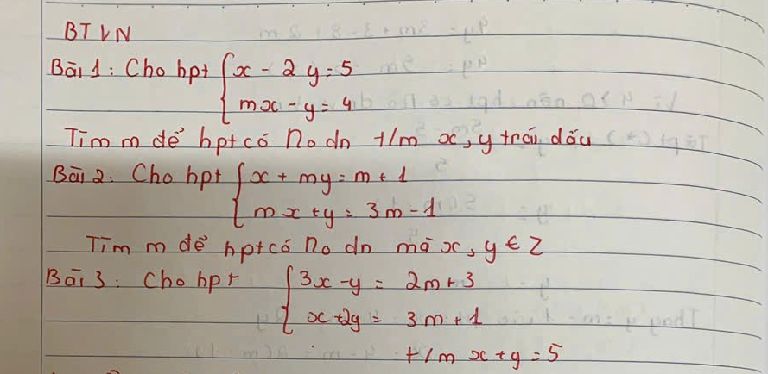 BTVN
Bài 1: Cho hpt { x - 2y = 5
mx - y = 4
Tìm m để hpt có no dn t/m x, y trái dấu
Bài 2: Cho hpt { x + my = m + 1
mx + y = 3m - 1
Tìm m để hpt có no dn mà x, y ∈ Z
Bài 3: Cho hpt { 3x - y = 2m + 3
x + 2y = 3m + 1
t/m x + y = 5